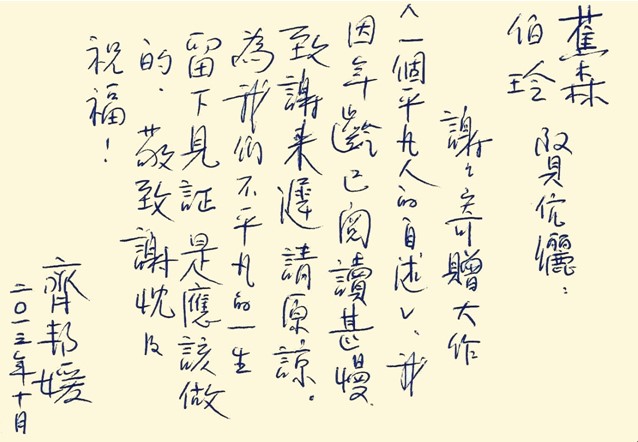 蕉森
伯玲 賢伉儷：
謝々寄贈大作
〈一個平凡人的自述〉、我
因年齡已閱讀甚慢.
致謝来遲請原諒。
為我们不平凡的一生
留下見証是應該做
的. 敬致謝忱及
祝福！
齊邦媛
二〇一三年十月